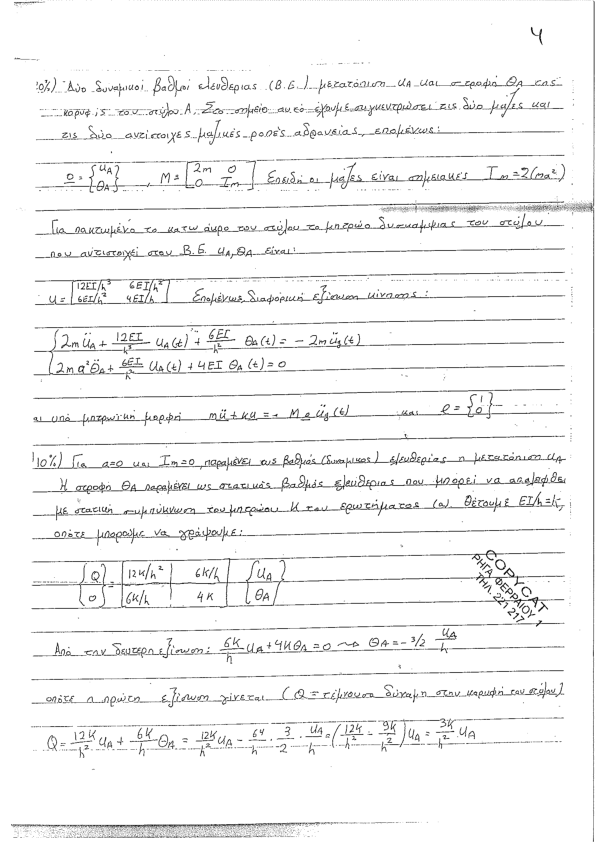 4
0%) Δύο δυναμικοί βαθμοί ελευθερίας (Β.Ε.) μετατόπιση uA και στροφή θA της
κορυφής του στύλου Α. Στο σημείο αυτό έχουμε συγκεντρώσει τις δύο μάζες και
τις δύο αντίστοιχες μαζικές ροπές αδρανείας, επομένως:
υ = {uA θA}, M = [2m 0 0 Im] Επειδή οι μάζες είναι σημειακές Im = 2(ma²)
Για πακτωμένο το κάτω άκρο του στύλου το μητρώο δυσκαμψίας του στύλου
που αντιστοιχεί στου Β.Ε. uA, θA είναι:
K = [12EI/h³ 6EI/h² 6EI/h² 4EI/h] Επομένως διαφορική εξίσωση κίνησης:
2müA + 12EI/h³ uA(t) + 6EI/h² θA(t) = - 2müg(t)
2ma²θ̈A + 6EI/h² uA(t) + 4EI θA(t) = 0
αι υπό μητρωική μορφή mü + ku = - M e üg(t) και e = {1 0}
10%) Για a=0 και Im=0, παραμένει ως βαθμός (δυναμικός) ελευθερίας η μετατόπιση uA
Η στροφή θA παραμένει ως στατικός βαθμός ελευθερίας που μπορεί να απαλειφθεί
με στατική συμπύκνωση του μητρώου K του ερωτήματος (α). Θέτουμε EI/h=K,
οπότε μπορούμε να γράψουμε:
{Q 0} = [12K/h² 6K/h 6K/h 4K] {uA θA}
COPYCAT
ΡΗΓΑ ΦΕΡΡΑΙΟΥ 1
ΤΗΛ. 221.217
Από την δεύτερη εξίσωση: 6K/h uA + 4KθA = 0 ⇝ θA = -3/2 uA/h
οπότε η πρώτη εξίσωση γίνεται (Q = τέμνουσα δύναμη στην κορυφή του στύλου)
Q = 12K/h² uA + 6K/h θA = 12K/h² uA - 6K/h · 3/2 · uA/h = (12K/h² - 9K/h²) uA = 3K/h² · uA